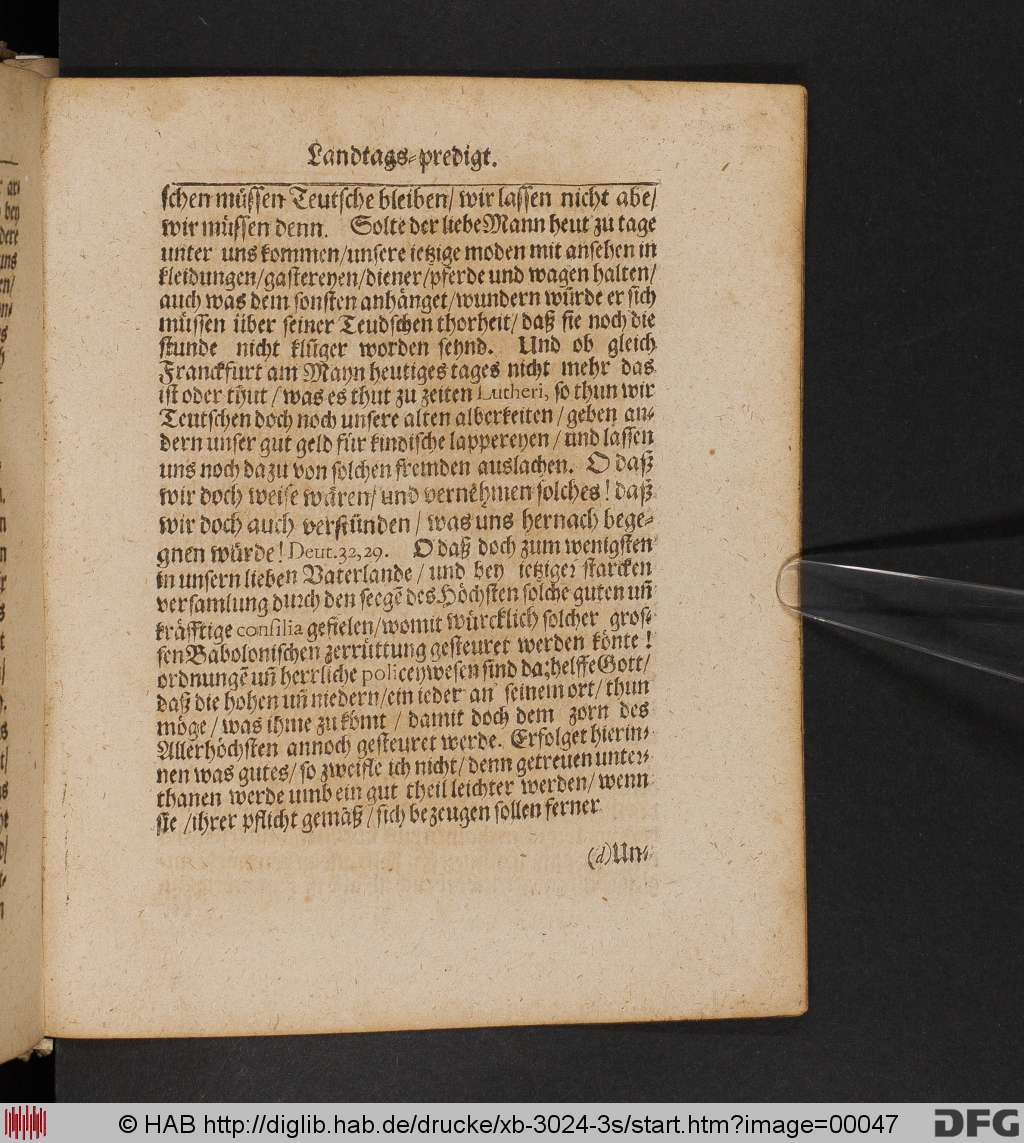 Landtags-predigt.
schen müssen Teutsche bleiben/ wir lassen nicht abe/
wir müssen denn. Solte der liebe Mann heut zu tage
unter uns kommen/unsere ietzige moden mit ansehen in
kleidungen/gastereyen/diener/pferde und wagen halten/
auch was dem sonsten anhänget/wundern würde er sich
müssen über seiner Teudschen thorheit/ daß sie noch die
stunde nicht klüger worden seynd. Und ob gleich
Franckfurt am Mayn heutiges tages nicht mehr das
ist oder thut/ was es thut zu zeiten Lutheri, so thun wir
Teutschen doch noch unsere alten alberkeiten/ geben an-
dern unser gut geld für kindische lappereyen/ und lassen
uns noch dazu von solchen fremden auslachen. O daß
wir doch weise wären/ und vernehmen solches! daß
wir doch auch verstünden/ was uns hernach bege-
gnen würde! Deut. 32, 29. O daß doch zum wenigsten
in unsern lieben Vaterlande/ und bey ietziger starcken
versamlung durch den seegē des Höchsten solche guten uñ
kräfftige consilia gefielen/womit würcklich solcher gros-
sen Babolonischen zerrüttung gesteuret werden könte!
ordnungē uñ herrliche policeywesen sind da; helffe Gott/
daß die hohen uñ niedern/ein ieder an seinem ort/ thun
möge/ was ihme zu kömt/ damit doch dem zorn des
Allerhöchsten annoch gesteuret werde. Erfolget hierin-
nen was gutes/ so zweifle ich nicht/ denn getreuen unter-
thanen werde umb ein gut theil leichter werden/ wenn
sie/ihrer pflicht gemäß/ sich bezeugen sollen ferner
(d) Un-
© HAB http://diglib.hab.de/drucke/xb-3024-3s/start.htm?image=00047
DFG